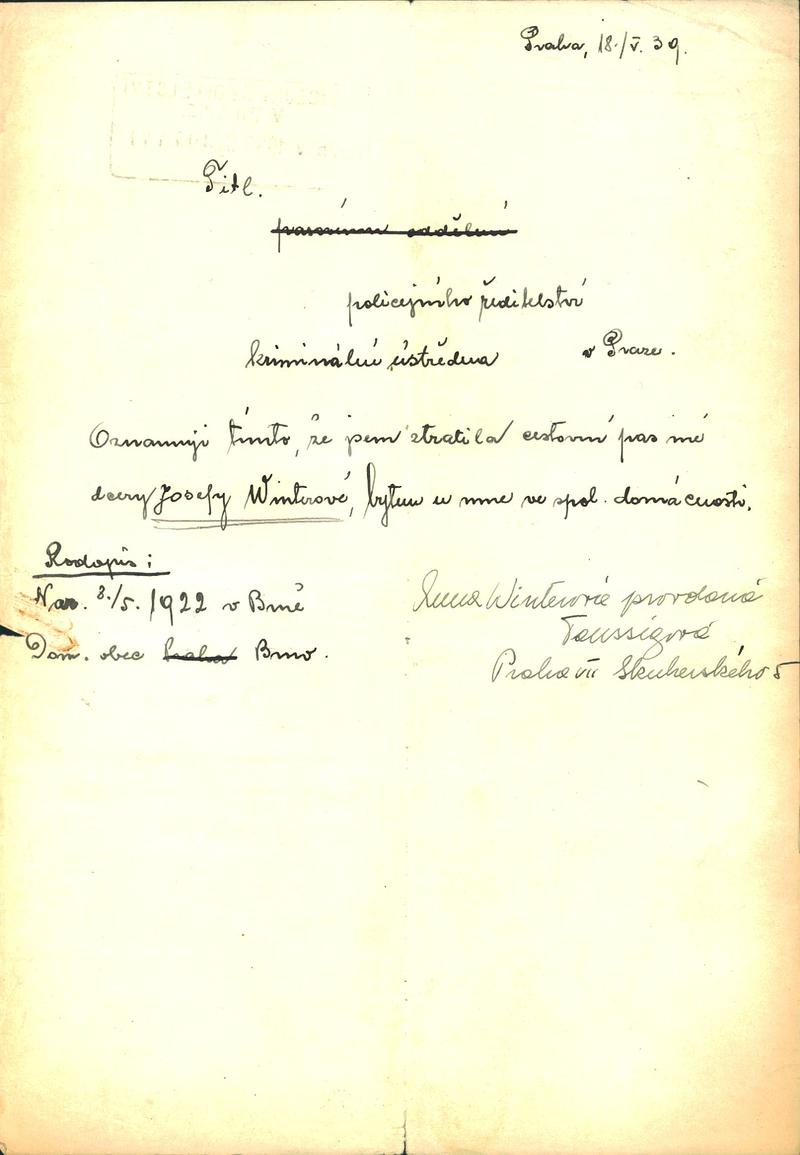 Praha, 18./V. 39.
Titl.
pasovému oddělení
policejního ředitelství
kriminální ústředna v Praze.
Oznamuji tímto, že jsem ztratila cestovní pas mé
dcery Josefy Winterové, bytem u mne ve spol. domácnosti.
Rodopis:
Nar. 8./5. 1922 v Brně
Dom. obec Praha Brno.
Winterová provdaná
Taussigová
Praha VII Skuherského 5